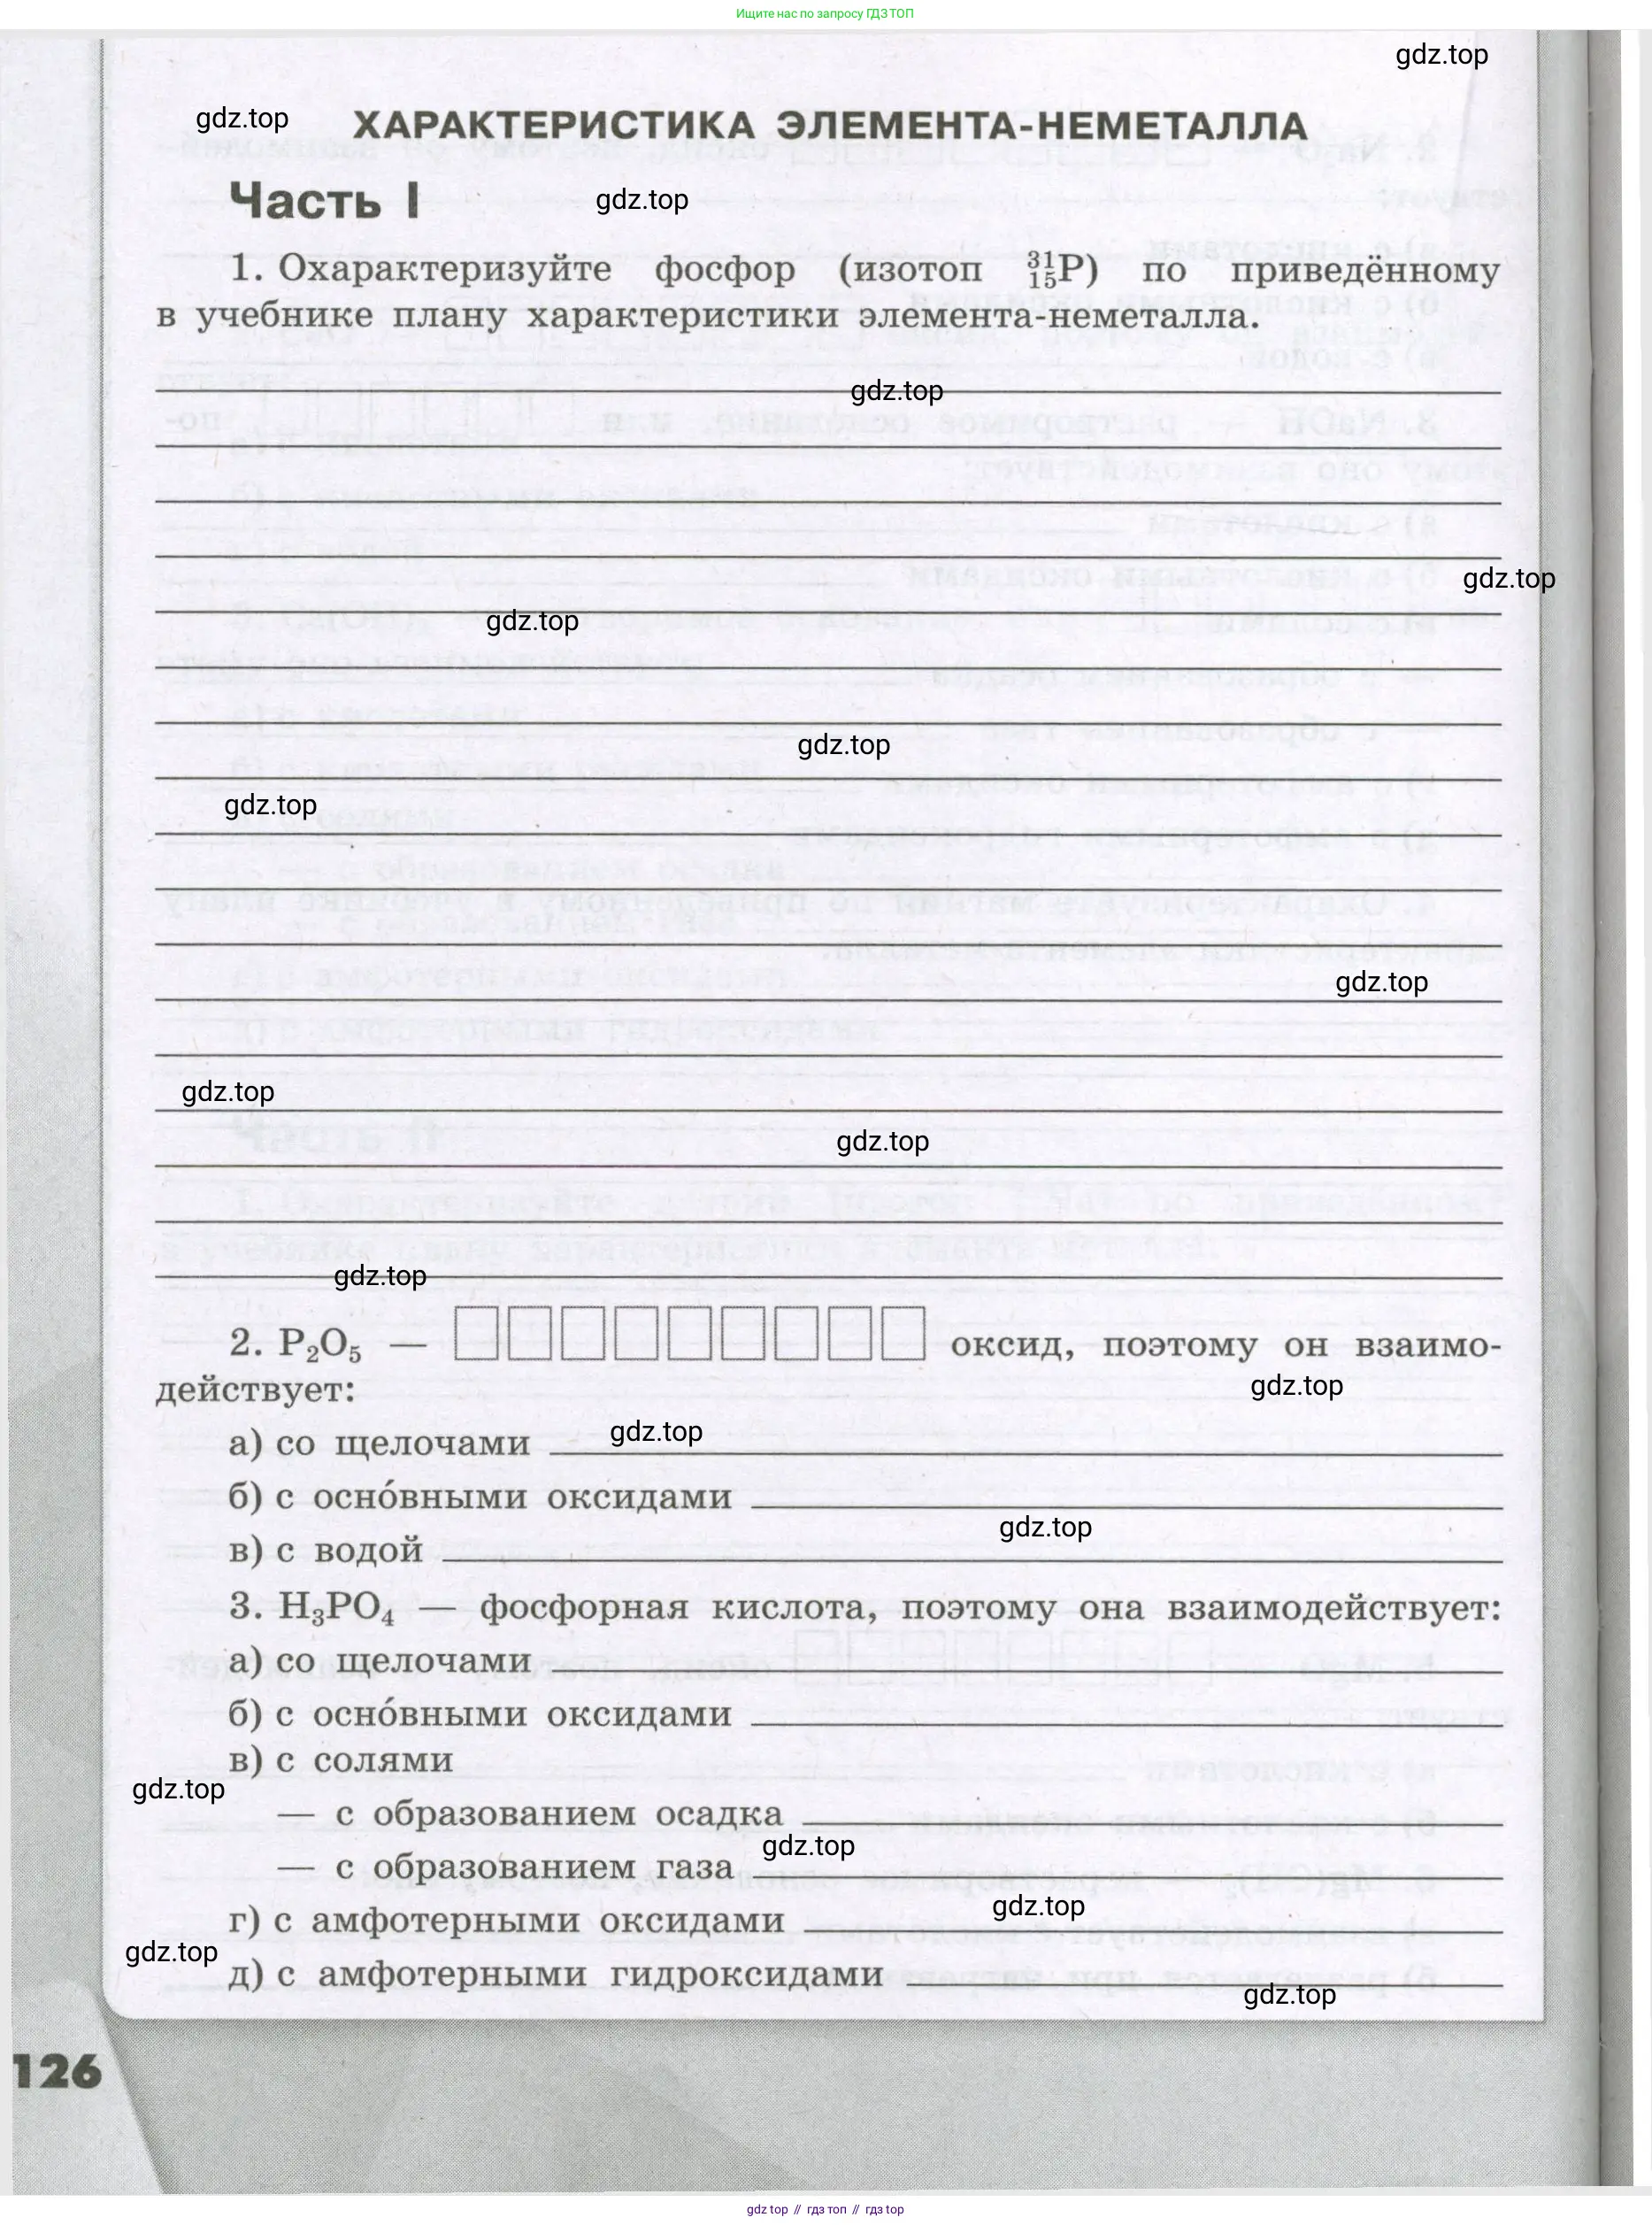 Ищите нас по запросу ГДЗ ТОП
gdz.top
gdz.top
ХАРАКТЕРИСТИКА ЭЛЕМЕНТА-НЕМЕТАЛЛА
Часть I
gdz.top
1. Охарактеризуйте фосфор (изотоп ³¹₁₅P) по приведённому
в учебнике плану характеристики элемента-неметалла.
gdz.top
gdz.top
gdz.top
gdz.top
gdz.top
gdz.top
gdz.top
gdz.top
gdz.top
2. P₂O₅ — оксид, поэтому он взаимо-
действует:
gdz.top
а) со щелочами
gdz.top
б) с осно́вными оксидами
gdz.top
в) с водой
3. H₃PO₄ — фосфорная кислота, поэтому она взаимодействует:
а) со щелочами
б) с осно́вными оксидами
в) с солями
gdz.top
— с образованием осадка
gdz.top
— с образованием газа
gdz.top
г) с амфотерными оксидами
gdz.top
д) с амфотерными гидроксидами
gdz.top
126
gdz top // гдз топ // гдз top